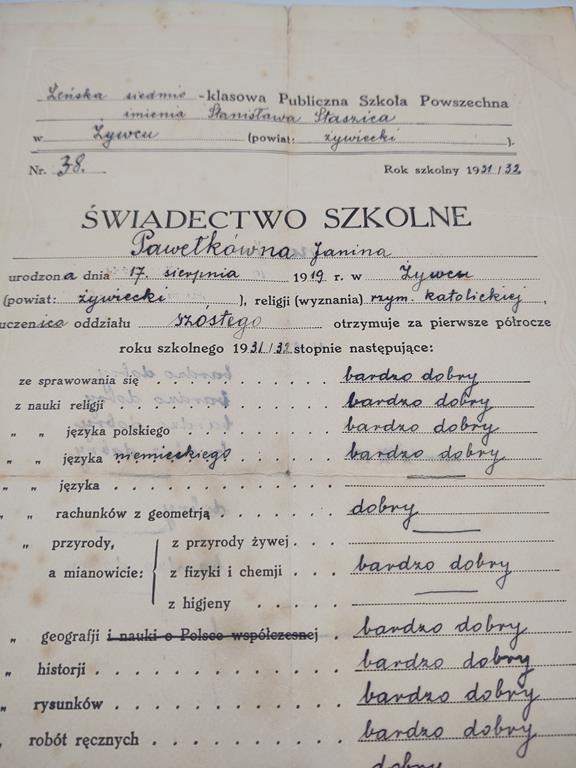 Żeńska siedmio -klasowa Publiczna Szkoła Powszechna
imienia Stanisława Staszica
w Żywcu (powiat: żywiecki ).
Nr. 38. Rok szkolny 1931/32
ŚWIADECTWO SZKOLNE
Pawełkówna Janina
urodzona dnia 17. sierpnia 1919 r. w Żywcu
(powiat: żywiecki ), religji (wyznania) rzym. katolickiej,
uczenica oddziału szóstego otrzymuje za pierwsze półrocze
roku szkolnego 1931/32 stopnie następujące:
ze sprawowania się bardzo dobry
z nauki religji bardzo dobry
„ „ języka polskiego bardzo dobry
„ „ języka niemieckiego bardzo dobry
„ „ języka
„ „ rachunków z geometrją dobry
„ przyrody, z przyrody żywej
a mianowicie: z fizyki i chemji bardzo dobry
z higjeny
„ geografji i nauki o Polsce współczesnej bardzo dobry
„ historji bardzo dobry
„ rysunków bardzo dobry
„ robót ręcznych bardzo dobry
dobry